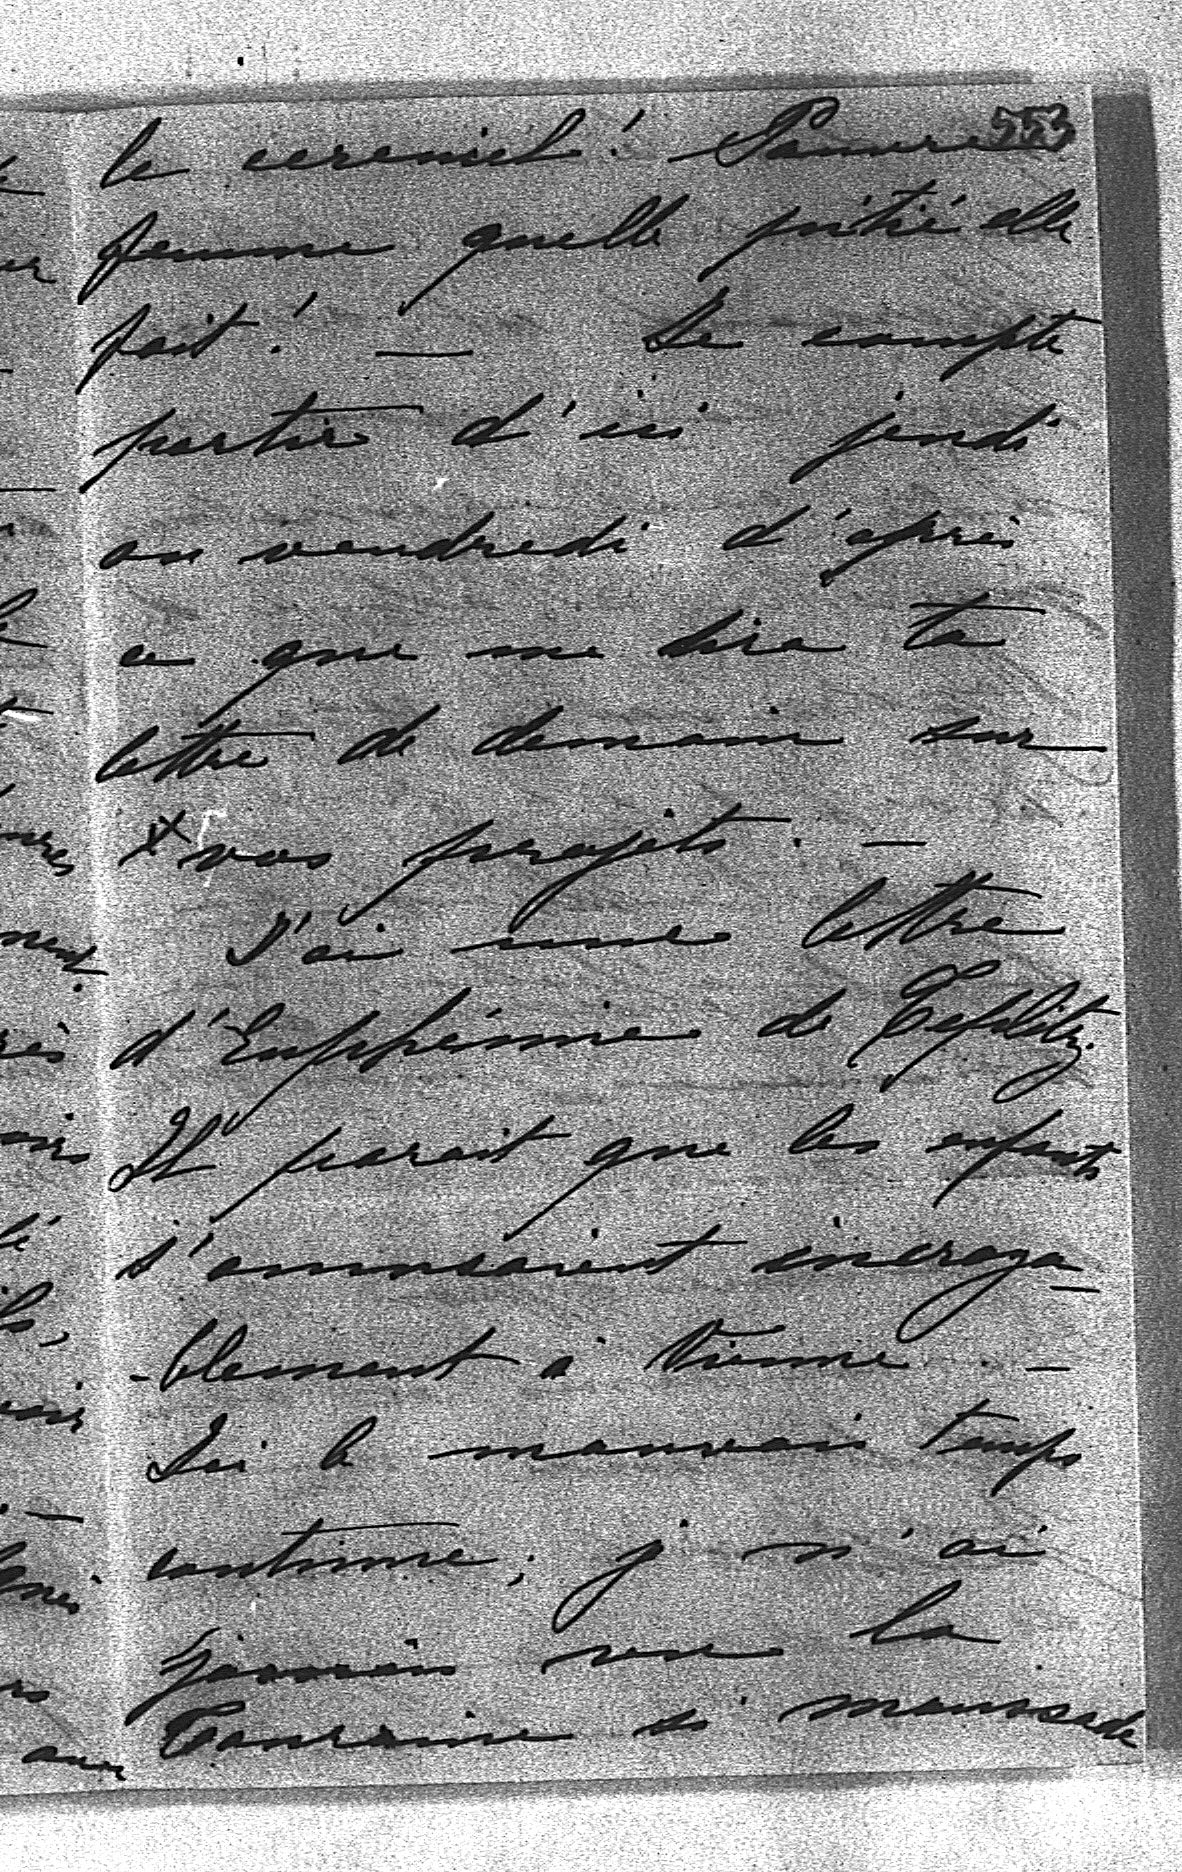 553
le cerceuil! Pauvre
femme quelle pitié elle
fait! — Je compte
partir d'ici jeudi
ou vendredi d'après
ce que me dira ta
lettre de demain sur
x vos projets. —
J'ai une lettre
d'Euphémie de Teplitz.
Il parait que les enfants
s'amusaient incroya-
-blement à Vienne. —
Ici le mauvais temps
continue; je n'ai
jamais vu la
Touraine si maussade